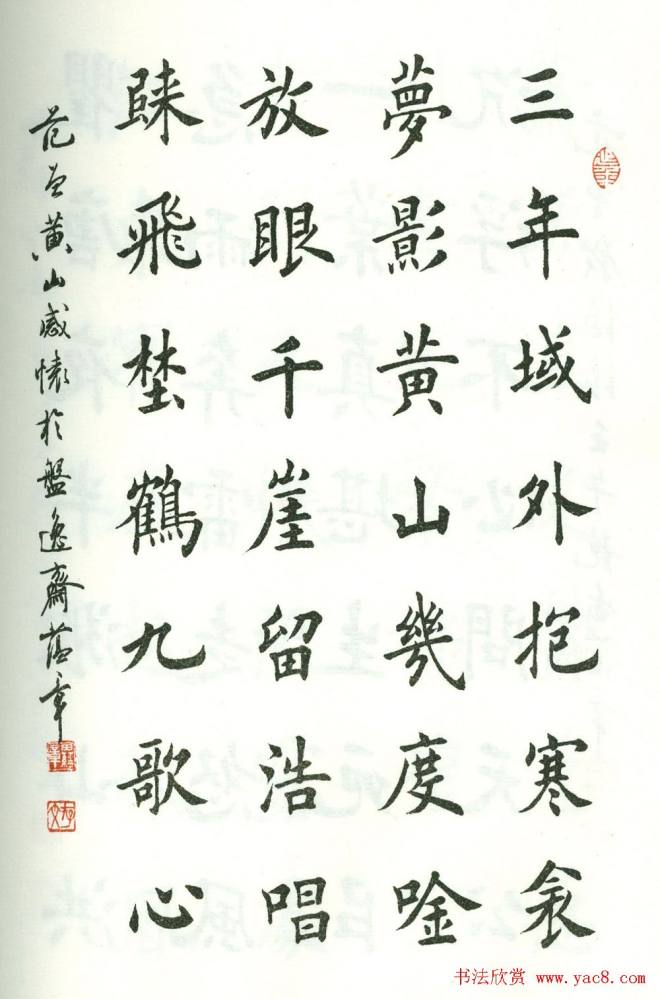 三年域外抱寒衾
夢影黄山幾度唫
放眼千崖留浩唱
飛埜鶴九歌心
范曾黄山感懷於盤逸齋章
书法欣赏 www.yac8.com